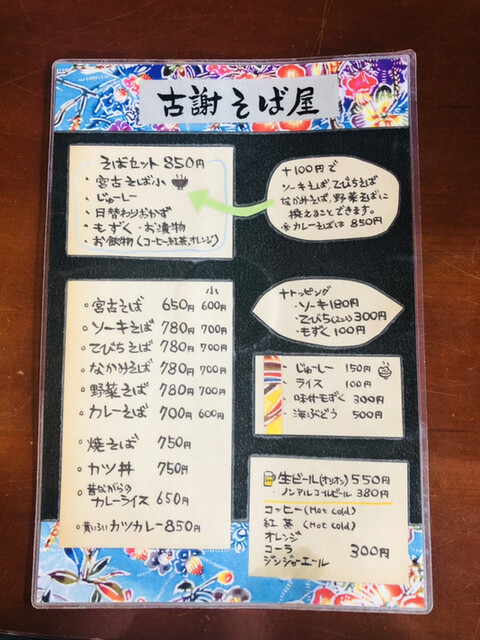 古謝そば屋
そばセット 850円
・宮古そば小
・じゅーしー
・日替わりおかず
・もずく・お漬物
・お飲物(コーヒー,紅茶,オレンジ)
+100円で
ソーキそば,てびちそば
なかみそば,野菜そばに
換えることできます。
※カレーそばは 850円
小
・宮古そば 650円 600円
・ソーキそば 780円 700円
・てびちそば 780円 700円
・なかみそば 780円 700円
・野菜そば 780円 700円
・カレーそば 700円 600円
・焼そば 750円
・カツ丼 750円
・昔ながらの
カレーライス 650円
・黄いろいカツカレー 850円
+トッピング
・ソーキ 180円
・てびち 300円
・もずく 100円
・じゅーしー 150円
・ライス 100円
・味付もずく 300円
・海ぶどう 500円
生ビール(オリオン) 550円
・ノンアルコールビール 380円
コーヒー(Hot cold)
紅茶(Hot cold)
オレンジ
コーラ 300円
ジンジャーエール